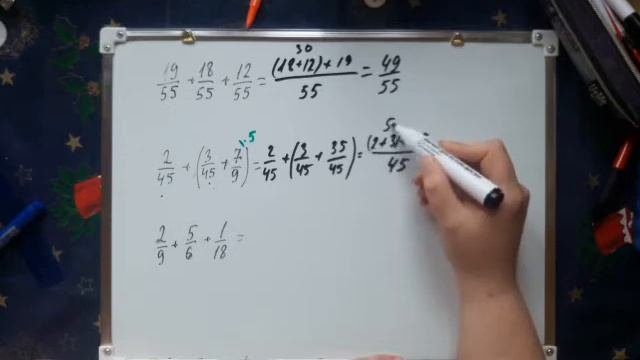 19/55 + 18/55 + 12/55 = (18+12)+19/55 = 49/55
30
2/45 + (3/45 + 7/9) = 2/45 + (3/45 + 35/45) = (2+3)/45
5
5
2/9 + 5/6 + 1/18 =